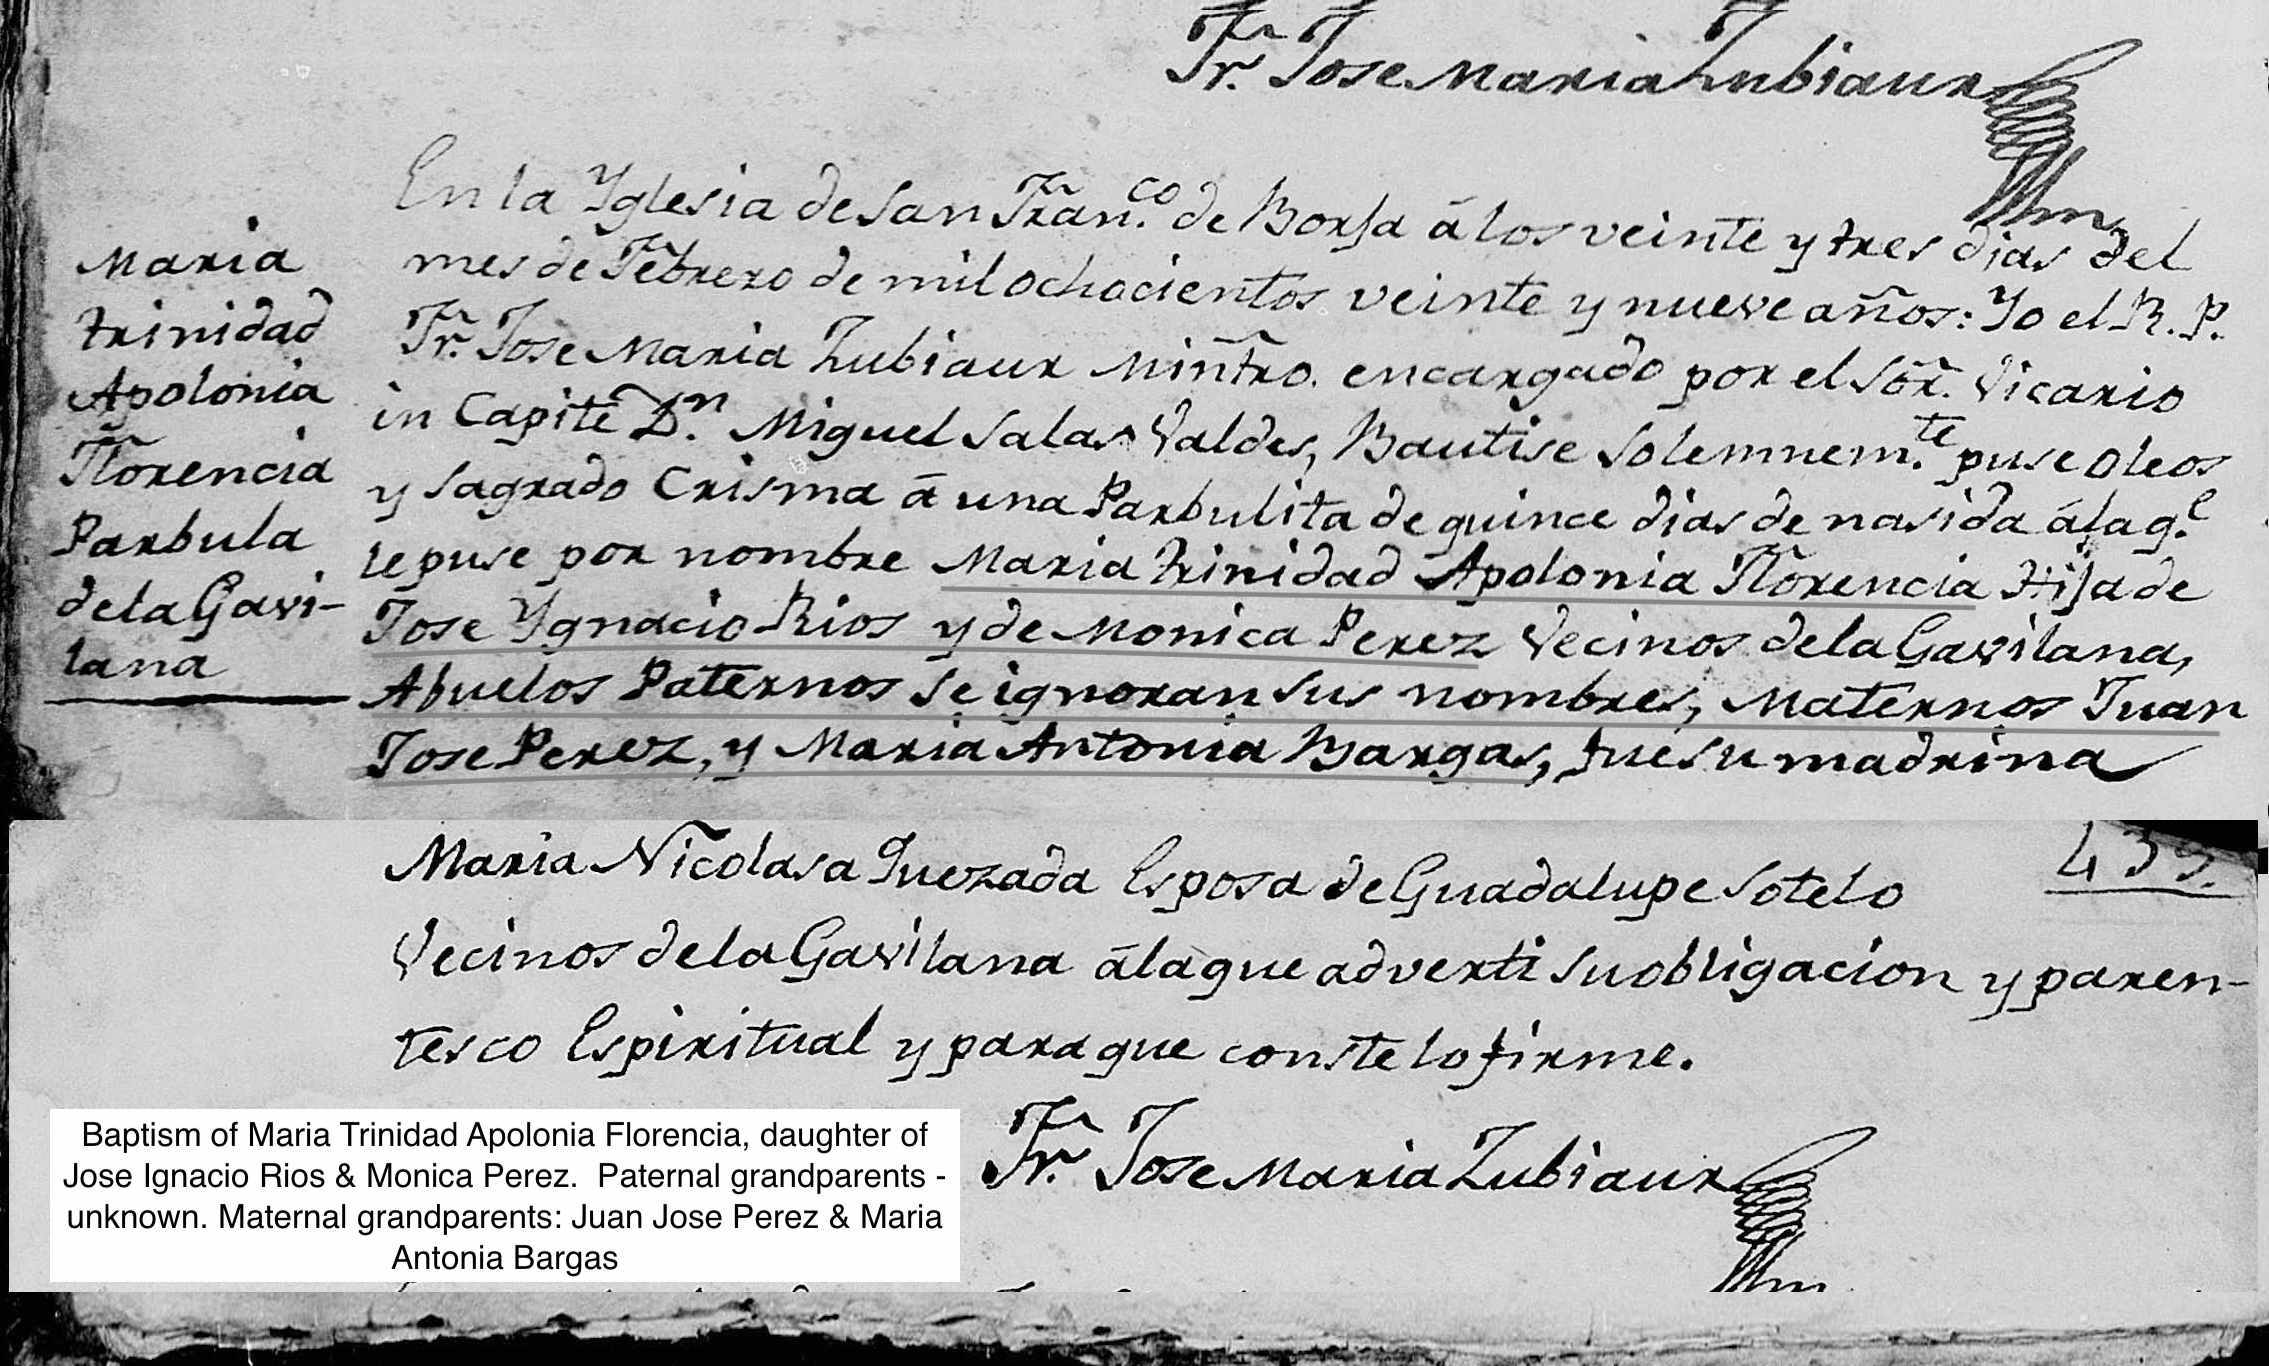 Fr. Jose Maria Zubiaur
Maria
trinidad
Apolonia
Florencia
Parbula
de la Gavi-
lana
En la Yglesia de San Fran.co de Borja á los veinte y tres dias del
mes de Febrero de mil ochocientos veinte y nueve años: Yo el R. P.
Fr. Jose Maria Zubiaur Miñtro. encargado por el Sõr. Vicario
in Capite D.n Miguel Salas Valdes, Bautise Solemnem.te puse oleos
y sagrado Crisma á una Parbulita de quince dias de nasida á la q.e
le puse por nombre Maria trinidad Apolonia Florencia Hija de
Jose Ygnacio Rios y de Monica Perez Vecinos de la Gavilana,
Abuelos Paternos se ignoran sus nombres, Maternos Juan
Jose Perez, y Maria Antonia Bargas, fue su madrina
439.
Maria Nicolasa Quezada Esposa de Guadalupe Sotelo
Vecinos de la Gavilana á la que adverti su obligacion y paren-
tesco Espiritual y para que conste lo firme.
Fr. Jose Maria Zubiaur
Baptism of Maria Trinidad Apolonia Florencia, daughter of
Jose Ignacio Rios & Monica Perez.  Paternal grandparents -
unknown. Maternal grandparents: Juan Jose Perez & Maria
Antonia Bargas